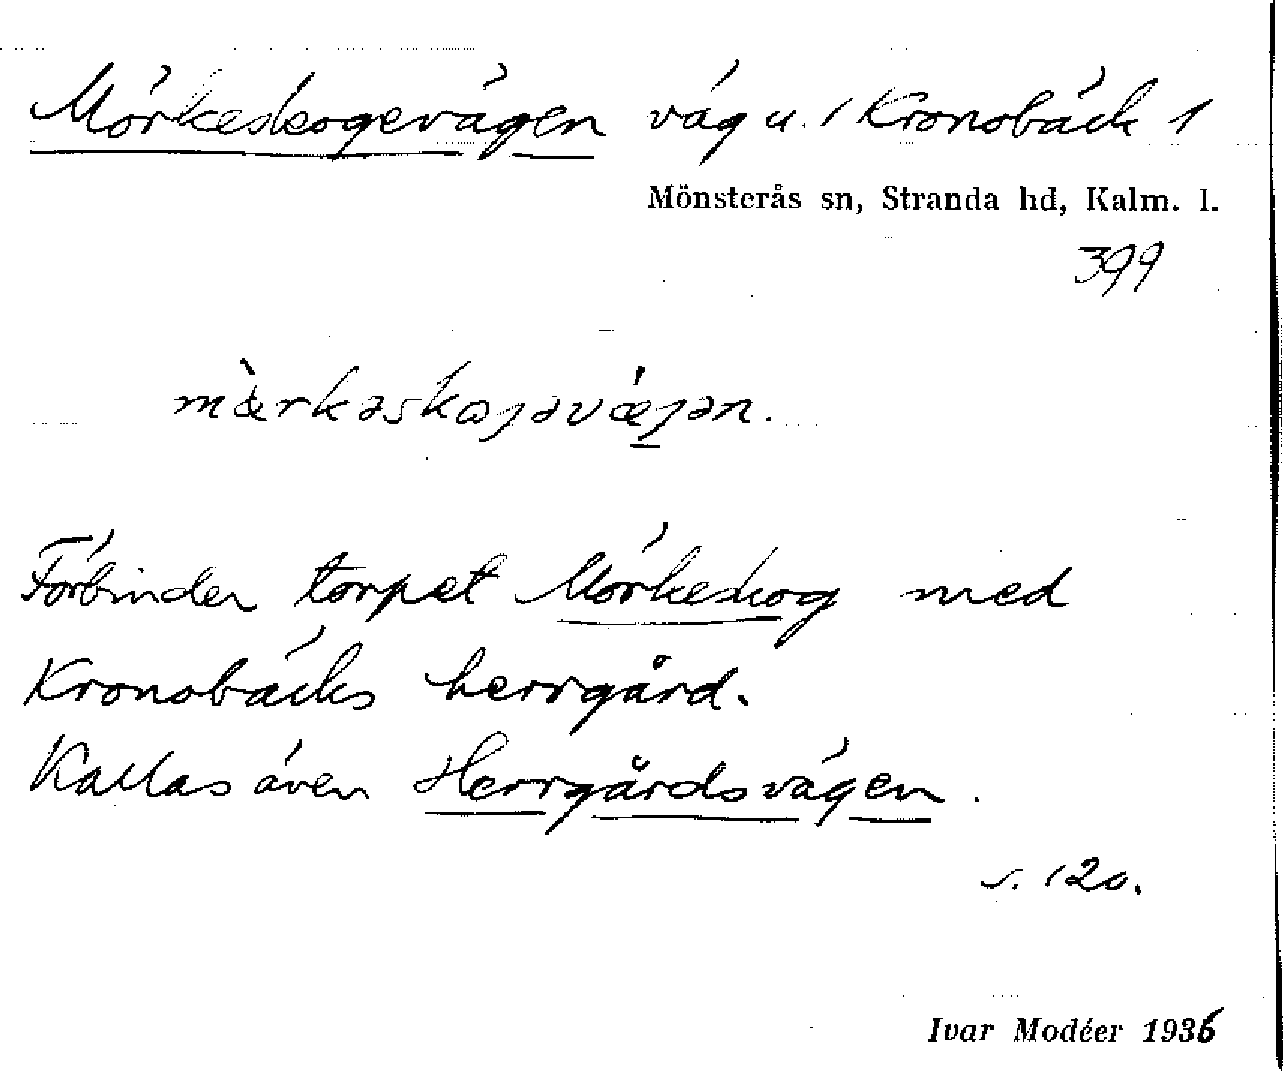 Mörkeskogevägen väg u. / Kronobäck 1
Mönsterås sn, Stranda hd, Kalm. l.
399
mæ̀rkəskoȷəvæ̍ȷən.
Förbinder torpet Mörkeskog med
Kronobäcks herrgård.
Kallas även Herrgårdsvägen.
s. 120.
Ivar Modéer 1936